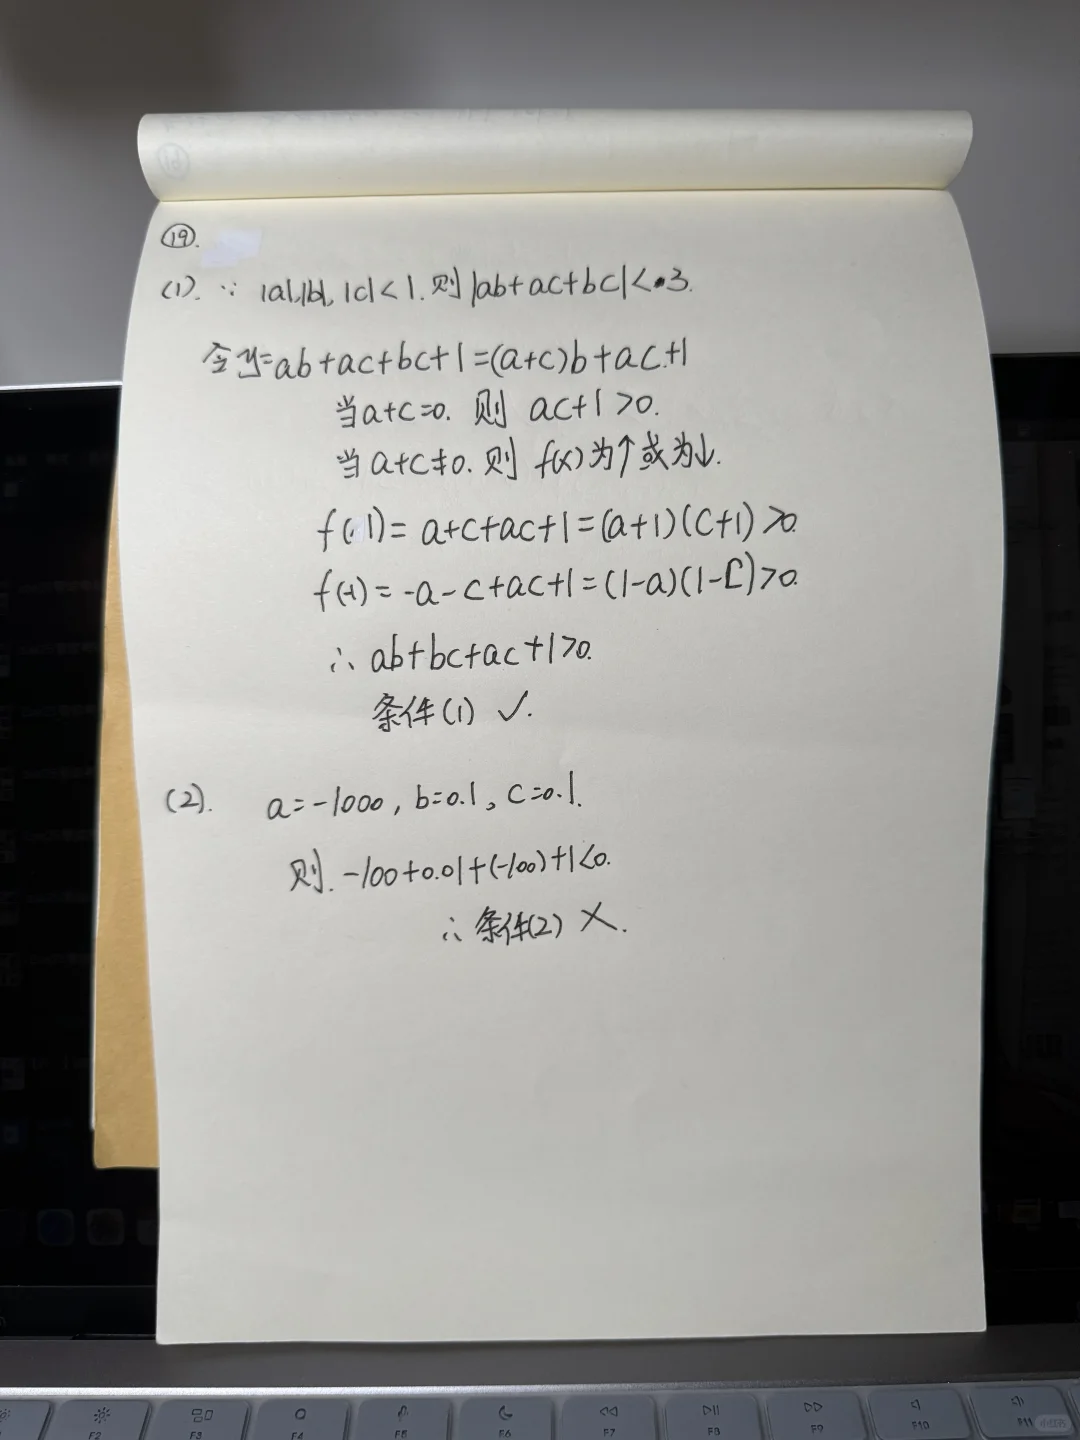 ⑲.
(1). ∵ |a|,|b|,|c|<1.则|ab+ac+bc|<3.
令y=ab+ac+bc+1=(a+c)b+ac+1
当a+c=0.则 ac+1>0.
当a+c≠0.则 f(x)为↑或为↓.
f(1)=a+c+ac+1=(a+1)(c+1)>0.
f(-1)=-a-c+ac+1=(1-a)(1-c)>0.
∴ab+bc+ac+1>0.
条件(1) ✓.
(2). a=-1000,b=0.1,c=0.1.
则.-100+0.01+(-100)+1<0.
∴条件(2) ×.
F2 F3 F4 F5 F6 F7 F8 F9 F10 F11
小红书